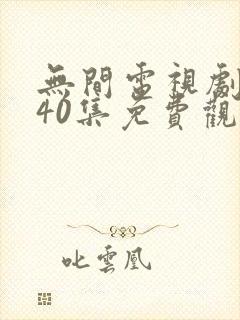 無間電視劇
40集免費觀
叱雲凰